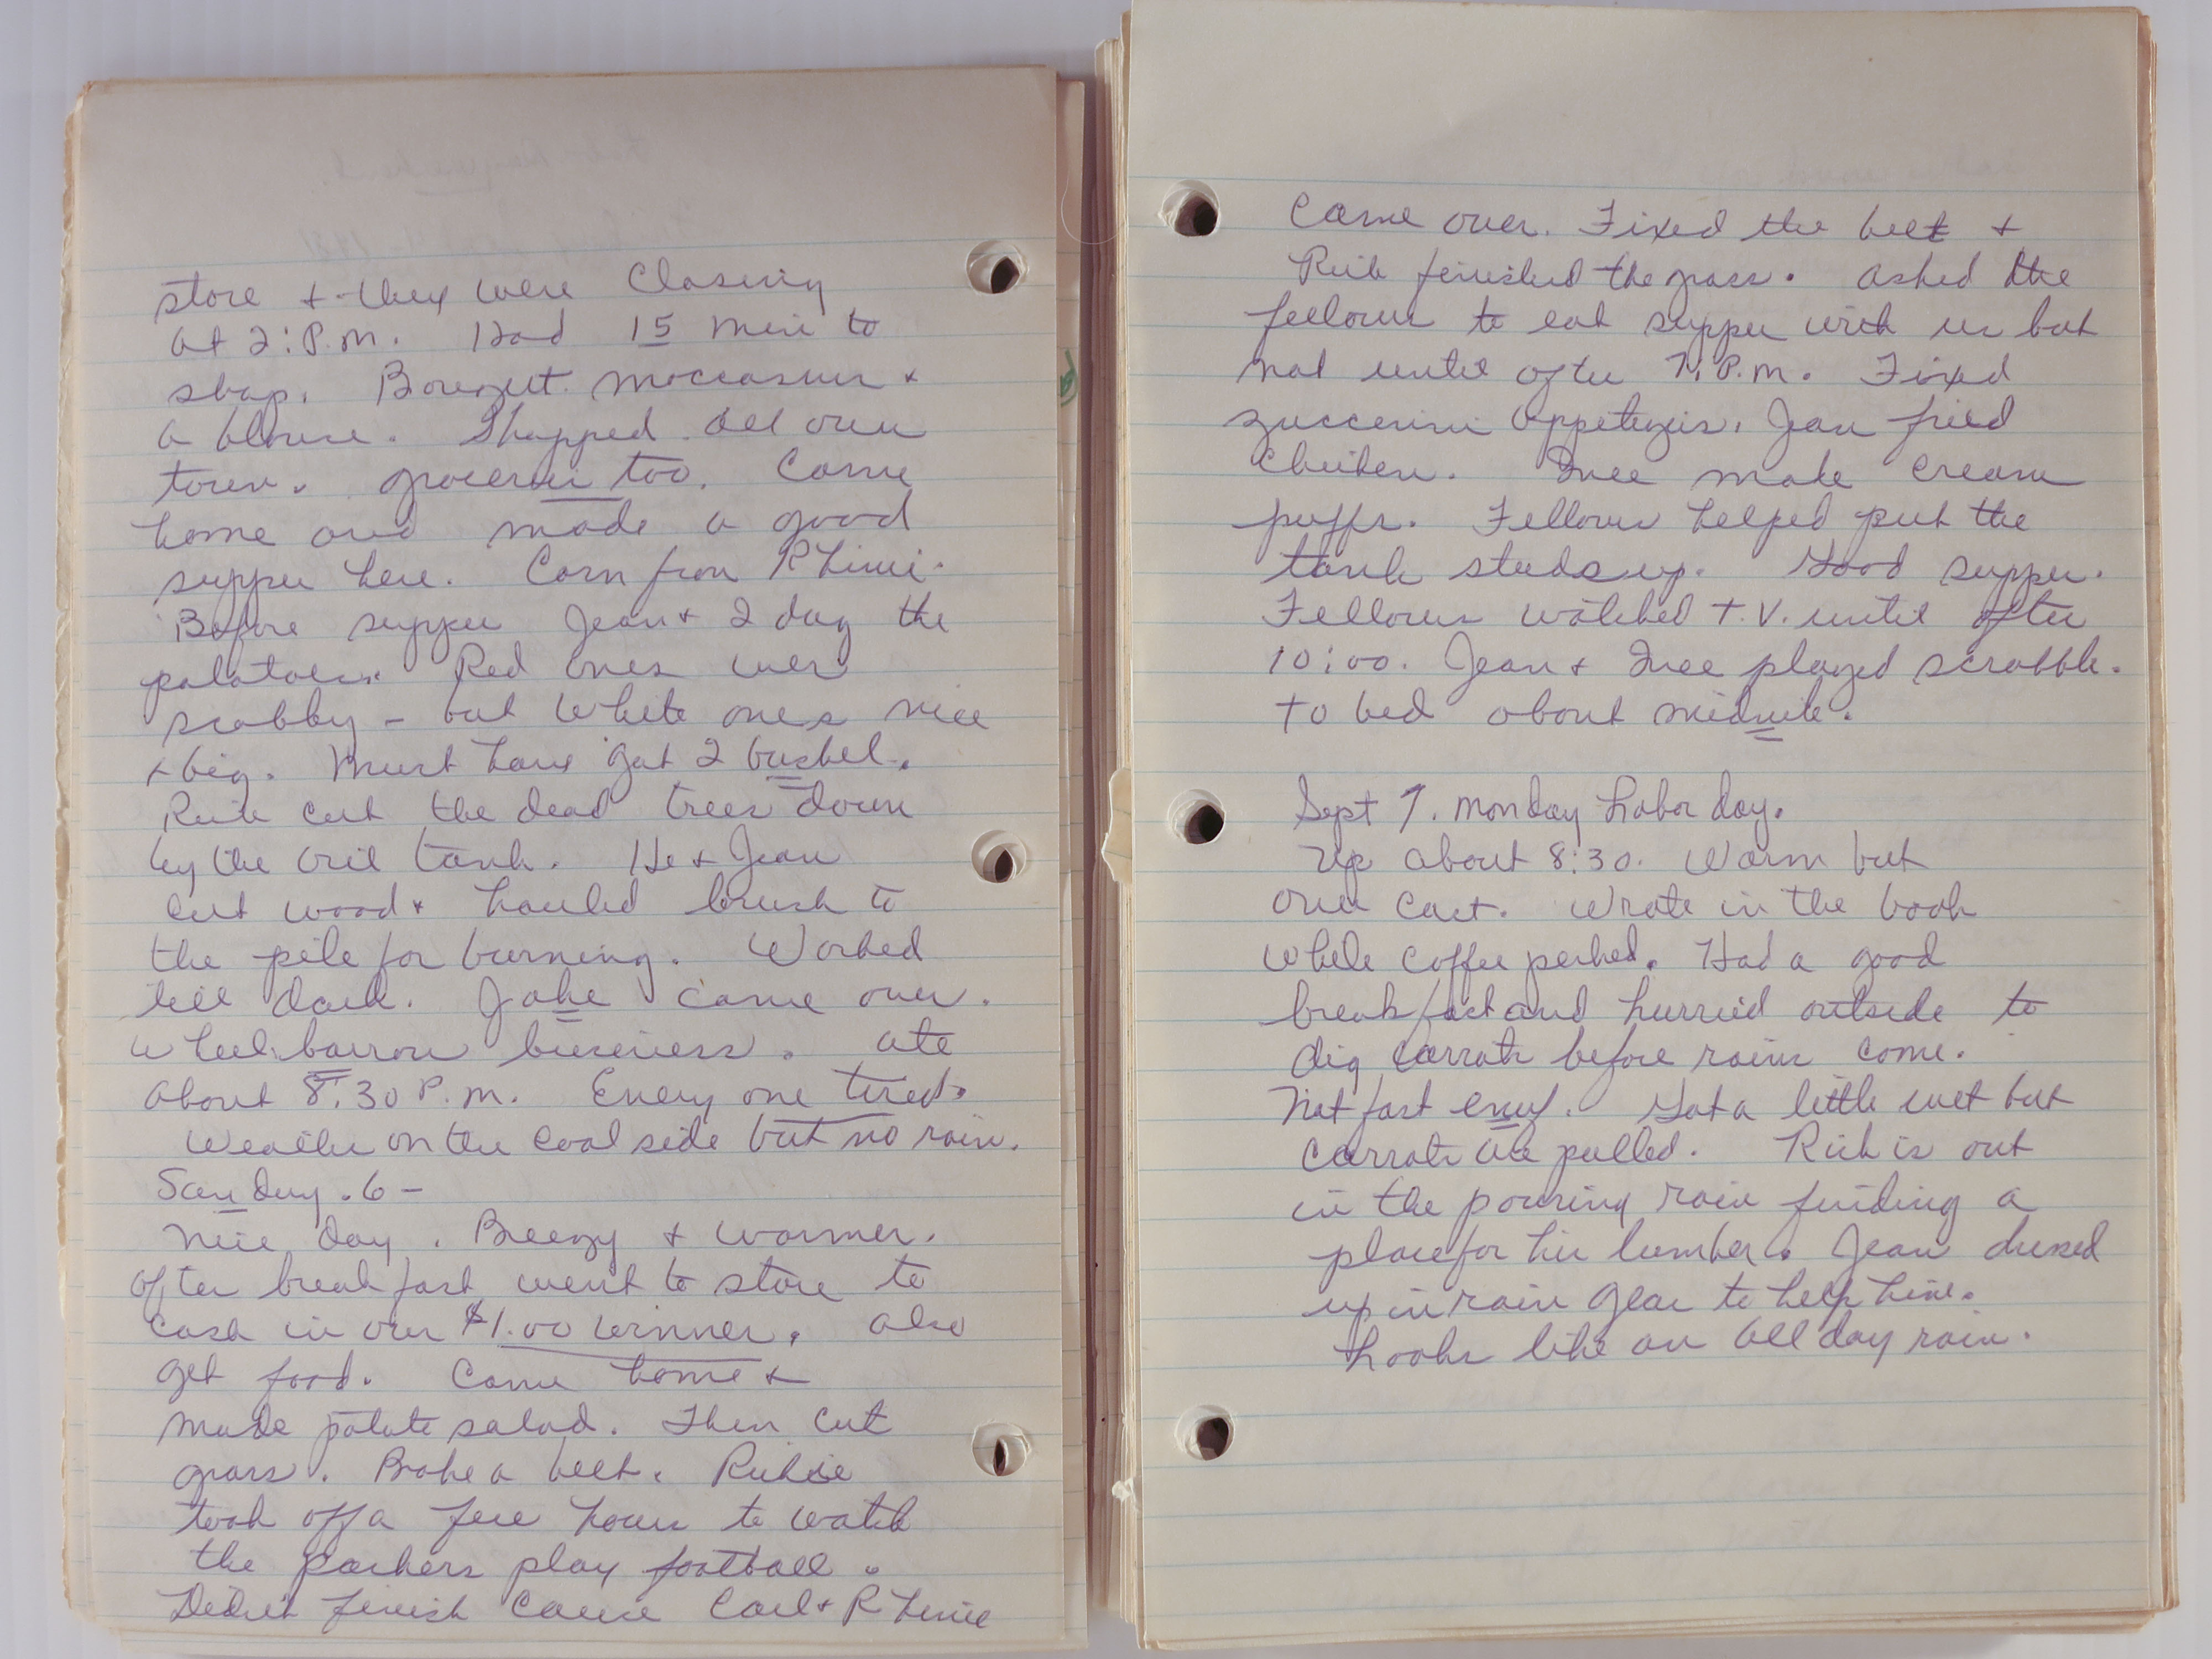 store + they were Closing
at 2:P.m. Had 15 min to
shop. Bought moccasins +
a blouse. Shopped all over
town. groceries too. Came
home and made a good
supper here. Corn from
Before supper Jean + I dug the
potatoes. Red ones were
scabby - but White ones nice
+ big. Must have got 2 bushel.
Rich cut the dead trees down
by the oil tank. He + Jean
cut wood + hauled brush to
the pile for burning. Worked
till dark. Jake came over.
Wheelbarrow business. ate
about 8:30 P.m. Every one tired.
Weather on the cool side but no rain.
Sunday. 6 -
Nice day. Breezy + warmer.
after breakfast went to store to
cash in our $1.00 winner. also
get food. Came home +
made potato salad. Then cut
grass. Broke a belt. Richie
took off a few hours to watch
the packers play football.
Didn't finish Cause Carl +
Came over. Fixed the belt +
Rich finished the grass. asked the
fellows to eat supper with us but
not until after 7:P.m. Fixed
zuccerini appetizers. Jean fried
chicken. made cream
puffs. Fellows helped put the
tank studs up. Good supper.
Fellows watched T.V. until after
10:00. Jean + played scrabble.
to bed about midnite.
Sept 7. Monday Labor day.
Up about 8:30. Warm but
over cast. Wrote in the book
while coffee perked. Had a good
breakfast and hurried outside to
dig carrots before rains come.
Not fast enuf. Got a little wet but
carrots all pulled. Rich is out
in the pouring rain finding a
place for his lumber. Jean dressed
up in rain gear to help him.
Looks like an all day rain.